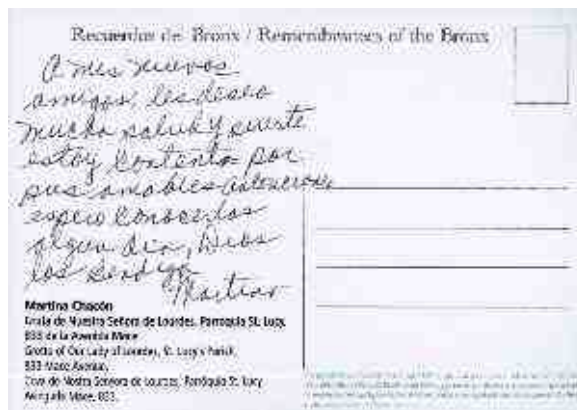 Recuerdos de Bronx / Remembrances of the Bronx
A mis nuevos
amigos, les deseo
mucha salud y suerte
estoy contenta por
sus amables
espero conocerlos
algun dia, Dios
los bendiga
Martina
Martina Chacón
Gruta de Nuestra Señora de Lourdes, Parroquia St. Lucy,
833 de la Avenida Mace
Grotto of Our Lady of Lourdes, St. Lucy's Parish,
833 Mace Avenue,
de Lourdes, Paróquia St. Lucy
Mace, 833.